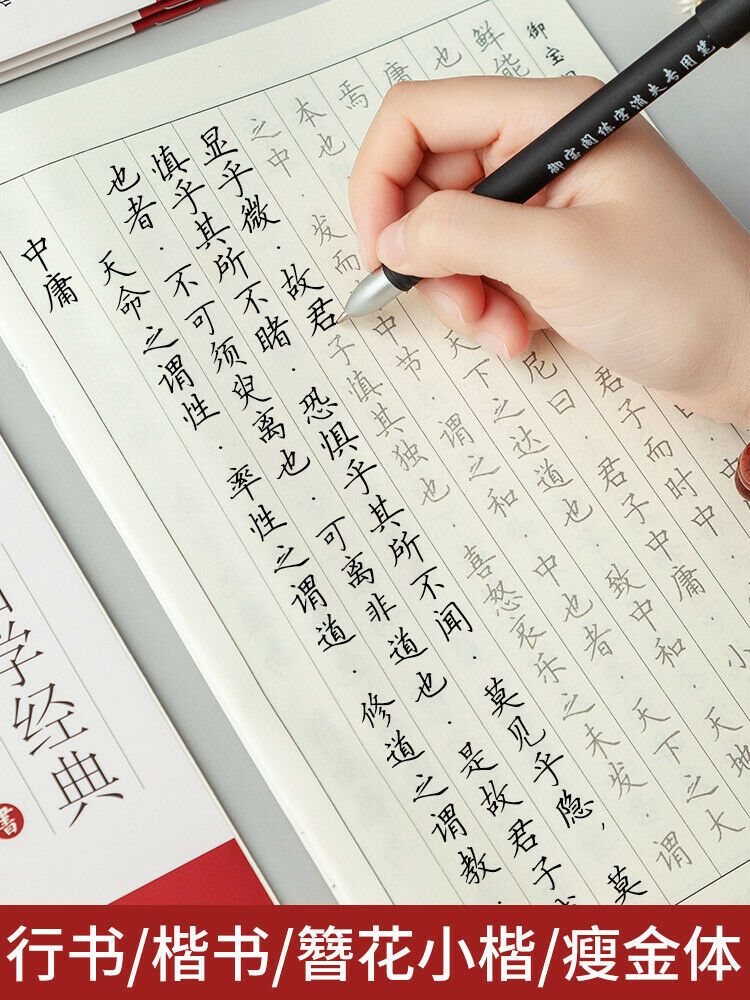 中庸
天命之谓性.率性之谓道.修道之谓教.
也者.不可须臾离也.可离非道也.是故君子
慎乎其所不睹.恐惧乎其所不闻.莫见乎隐,莫
显乎微.故君子慎其独也.喜怒哀乐之未发.谓
之中.发而 中节.谓之和.中也者.天下之大
本也. 天下之达道也.致中和.天地
焉. 尼曰.君子中庸.小
庸 君子而时中.
也
鲜能
御宝
御宝阁练字消失专用笔
学经典
書
行书/楷书/簪花小楷/瘦金体